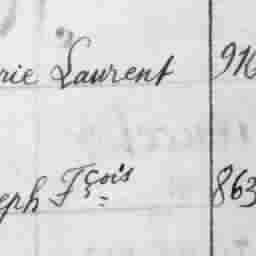 rie Laurent 916
eph Fçois 863